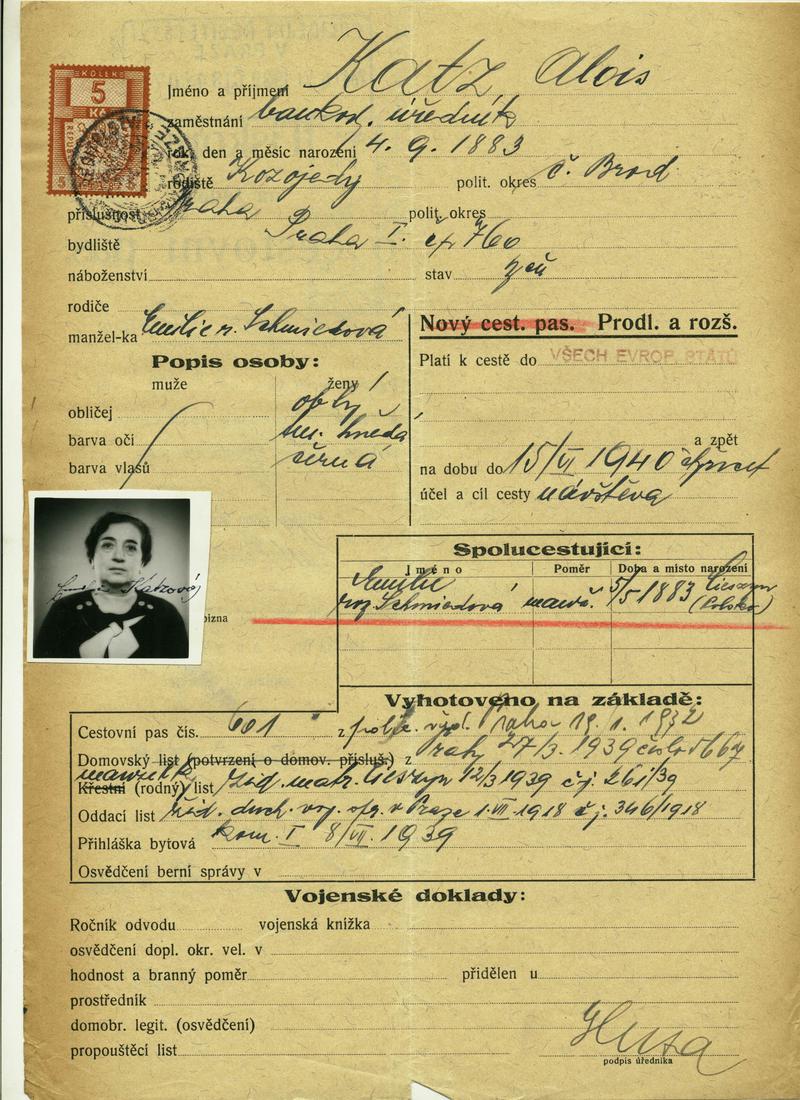 KOLEK
5
Kč
Jméno a příjmení Katz Alois
zaměstnání bankov. úředník
rok, den a měsíc narození 4. 9. 1883
rodiště Kozojedy polit. okres č. Brod
příslušnost Praha polit. okres
bydliště Praha I. čp 760
náboženství stav žen
rodiče
manžel-ka Emilie r. Schmiedová
Nový cest. pas. Prodl. a rozš.
Popis osoby:
Platí k cestě do VŠECH EVROP. STÁTŮ
muže ženy
obličej oblý
barva očí tm. hnědá
barva vlasů černá
a zpět
na dobu do 15/VI 1940
účel a cíl cesty návštěva
Emilie Katzová
pizna
Spolucestující:
Jméno Poměr Doba a místo narození
Emilie
roz. Schmiedová manž. 5/5 1883 Cieszyn
(Polsko)
Vyhotoveno na základě:
Cestovní pas čís. 601 z polic. Praha 19. 1. 1932
Domovský list (potvrzení o domov. přísluš.) z 27/3. 1939 číslo
manželk
Křestní (rodný) list žid. matr. Cieszyn 12/3 1939 čj. 261/39
Oddací list žid. duch. voj. v Praze 1. VII 1918 čj. 346/1918
Přihláška bytová kom. I 8/VII. 1939
Osvědčení berní správy v
Vojenské doklady:
Ročník odvodu vojenská knížka
osvědčení dopl. okr. vel. v
hodnost a branný poměr přidělen u
prostředník
domobr. legit. (osvědčení)
propouštěcí list
podpis úředníka